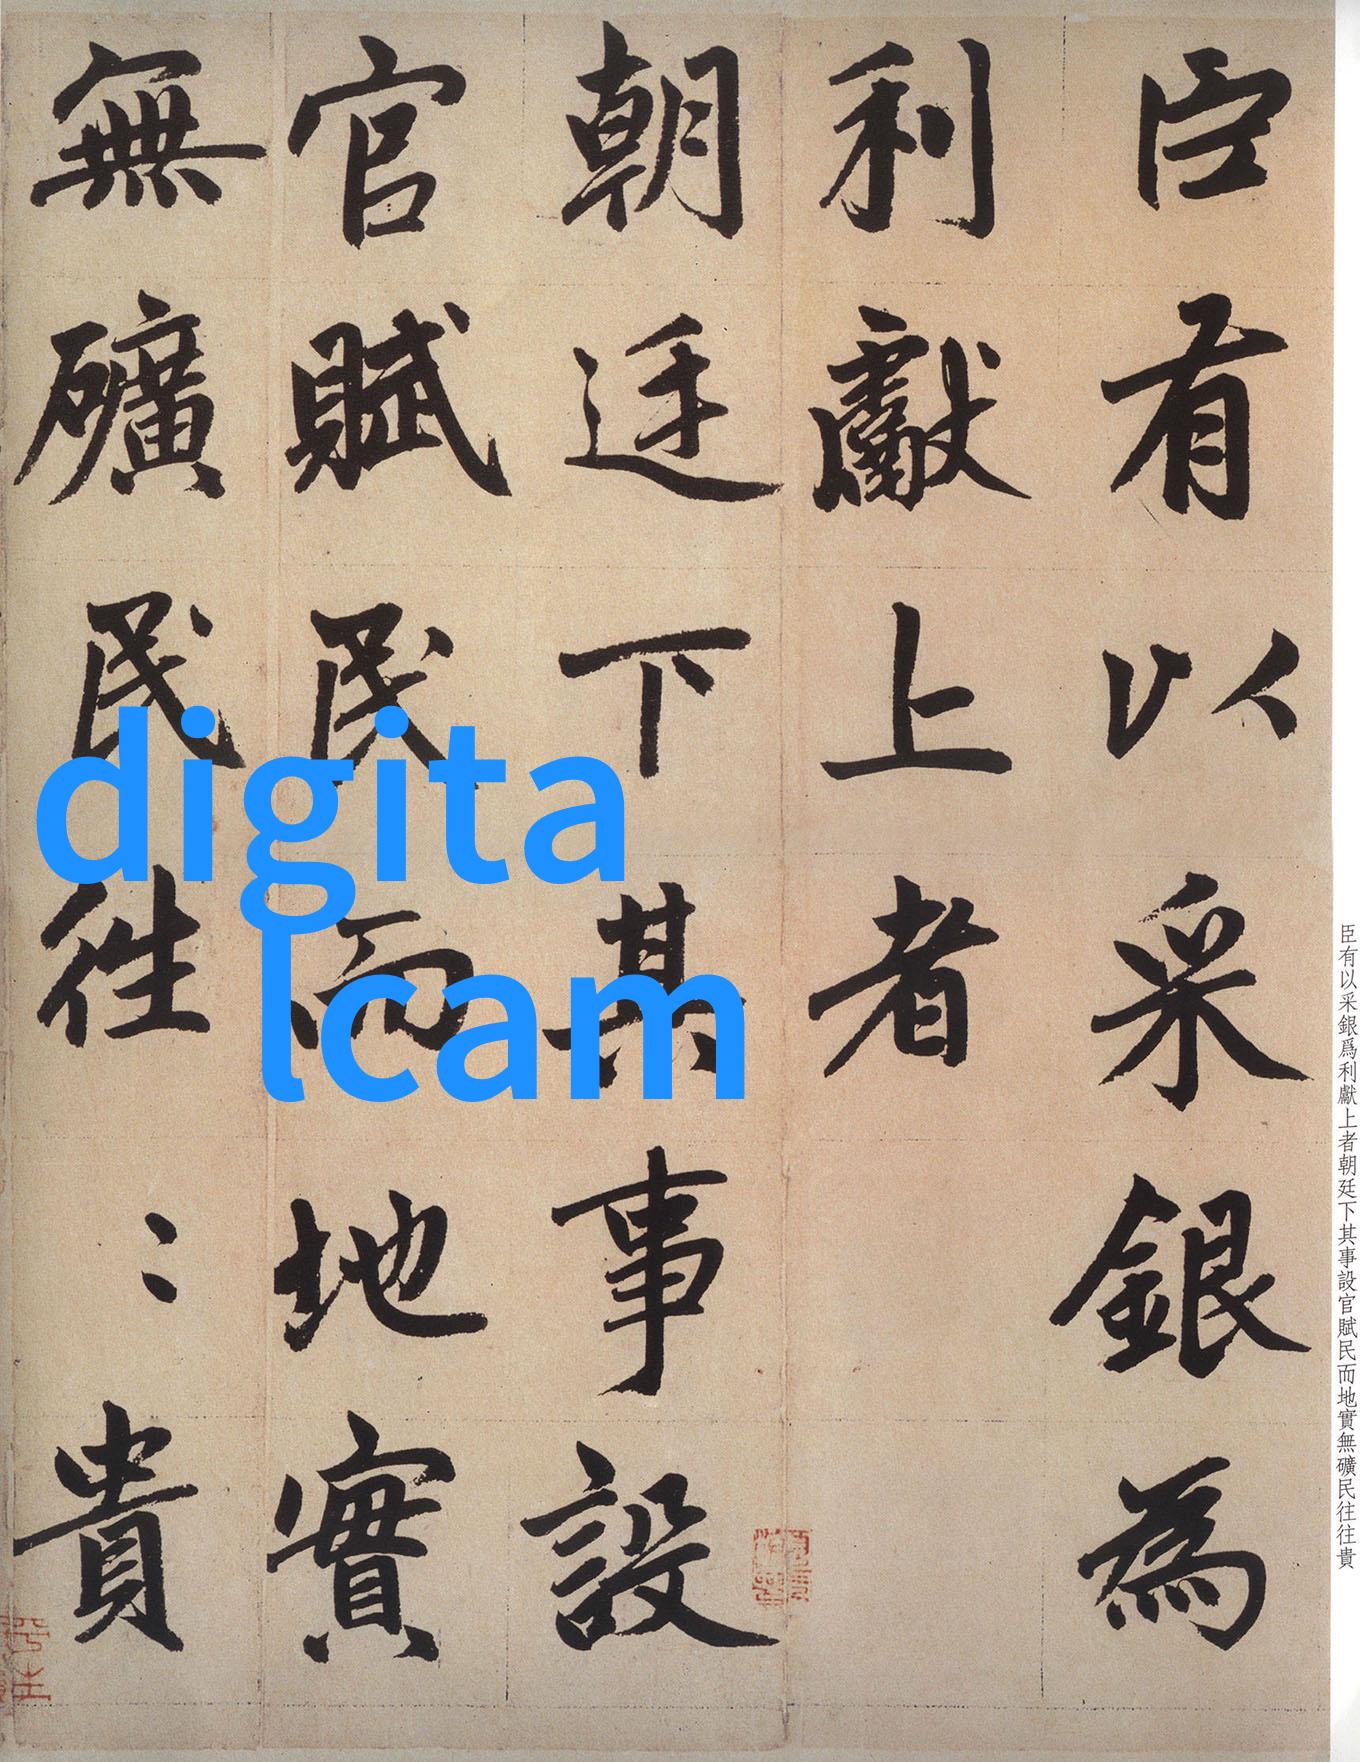 臣有以采銀為
利獻上者
朝廷下其事設
官賦民而地實
無礦民往〻貴
digita
lcam
臣有以采銀爲利獻上者朝廷下其事設官賦民而地實無礦民往往貴